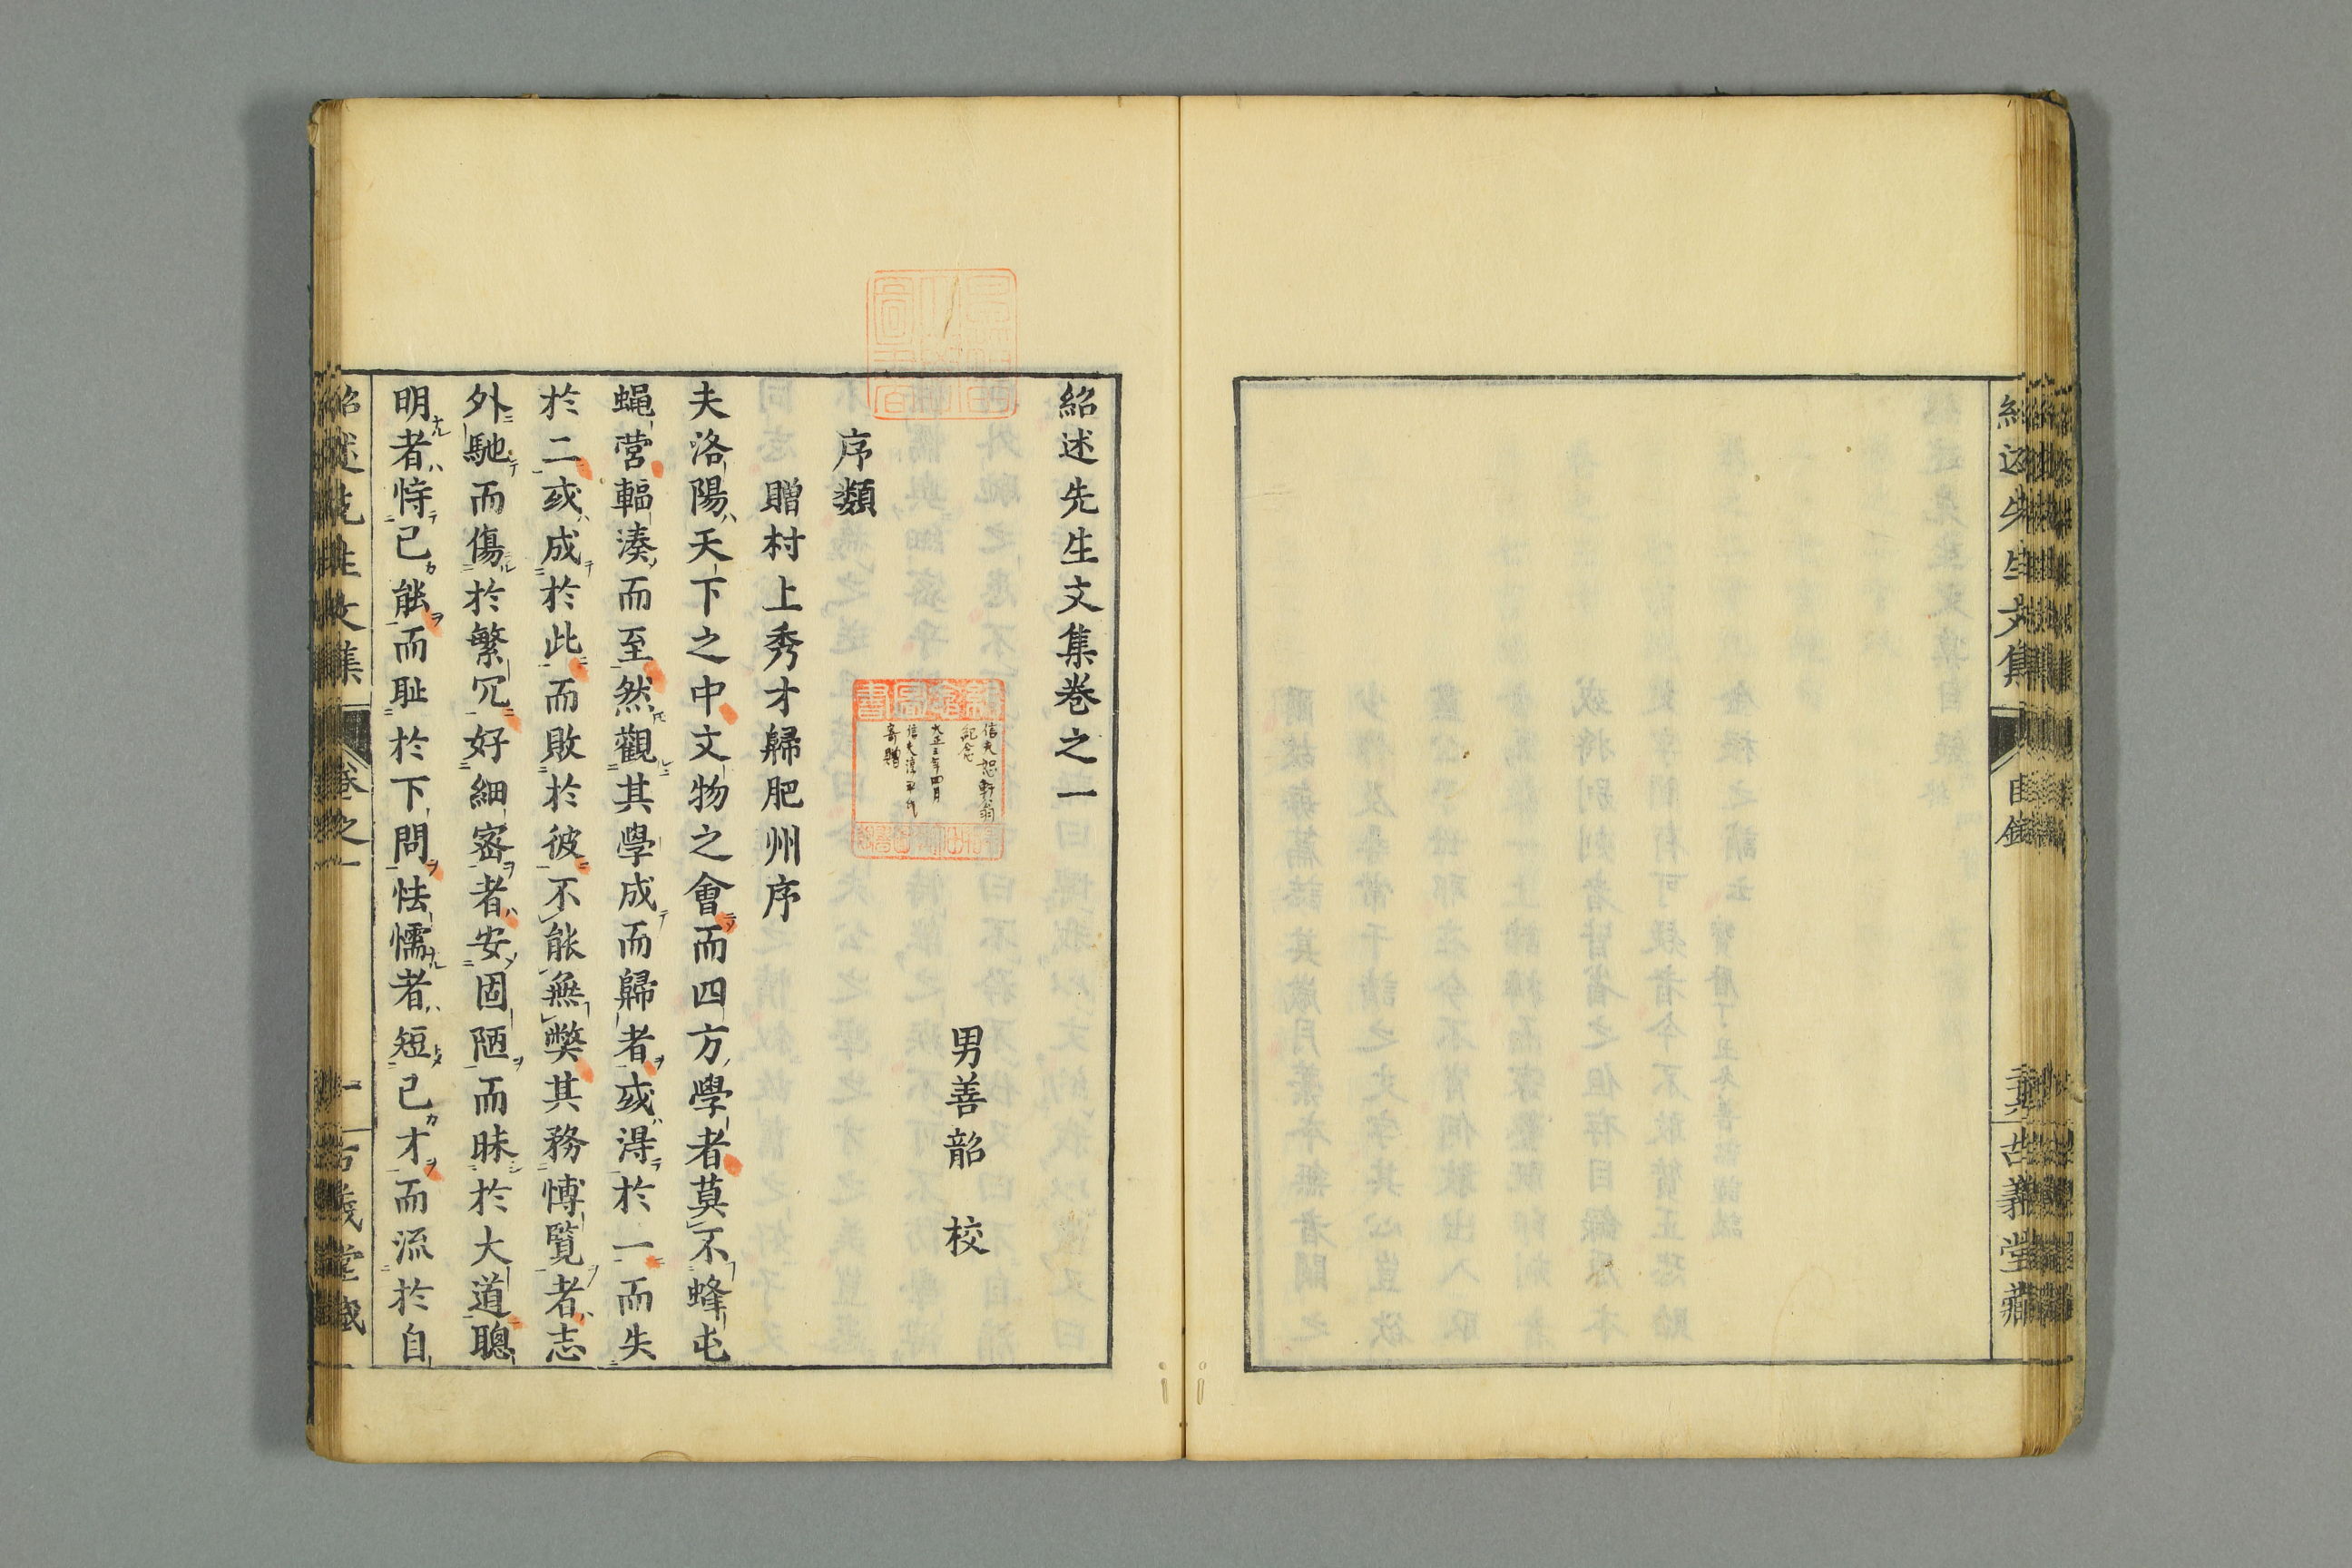 紹述先生文集
目錄
古義堂藏
紹述先生文集卷之一
男善韶 校
序類
贈村上秀才歸肥州序
夫洛陽天下之中文物之會而四方學者莫不蜂屯
蝿營輻湊而至然觀其學成而歸者或得於一而失
於二或成於此而敗於彼不能無獘其務博覧者志
外馳而傷於繁冗好細密者安固陋而昧於大道聰
明者恃己能而耻於下問怯懦者短己才而流於自
紹述先生文集
卷之一
一
古義堂藏
圖書
信夫恕軒翁
紀念
大正三年四月
信夫淳平氏
寄贈